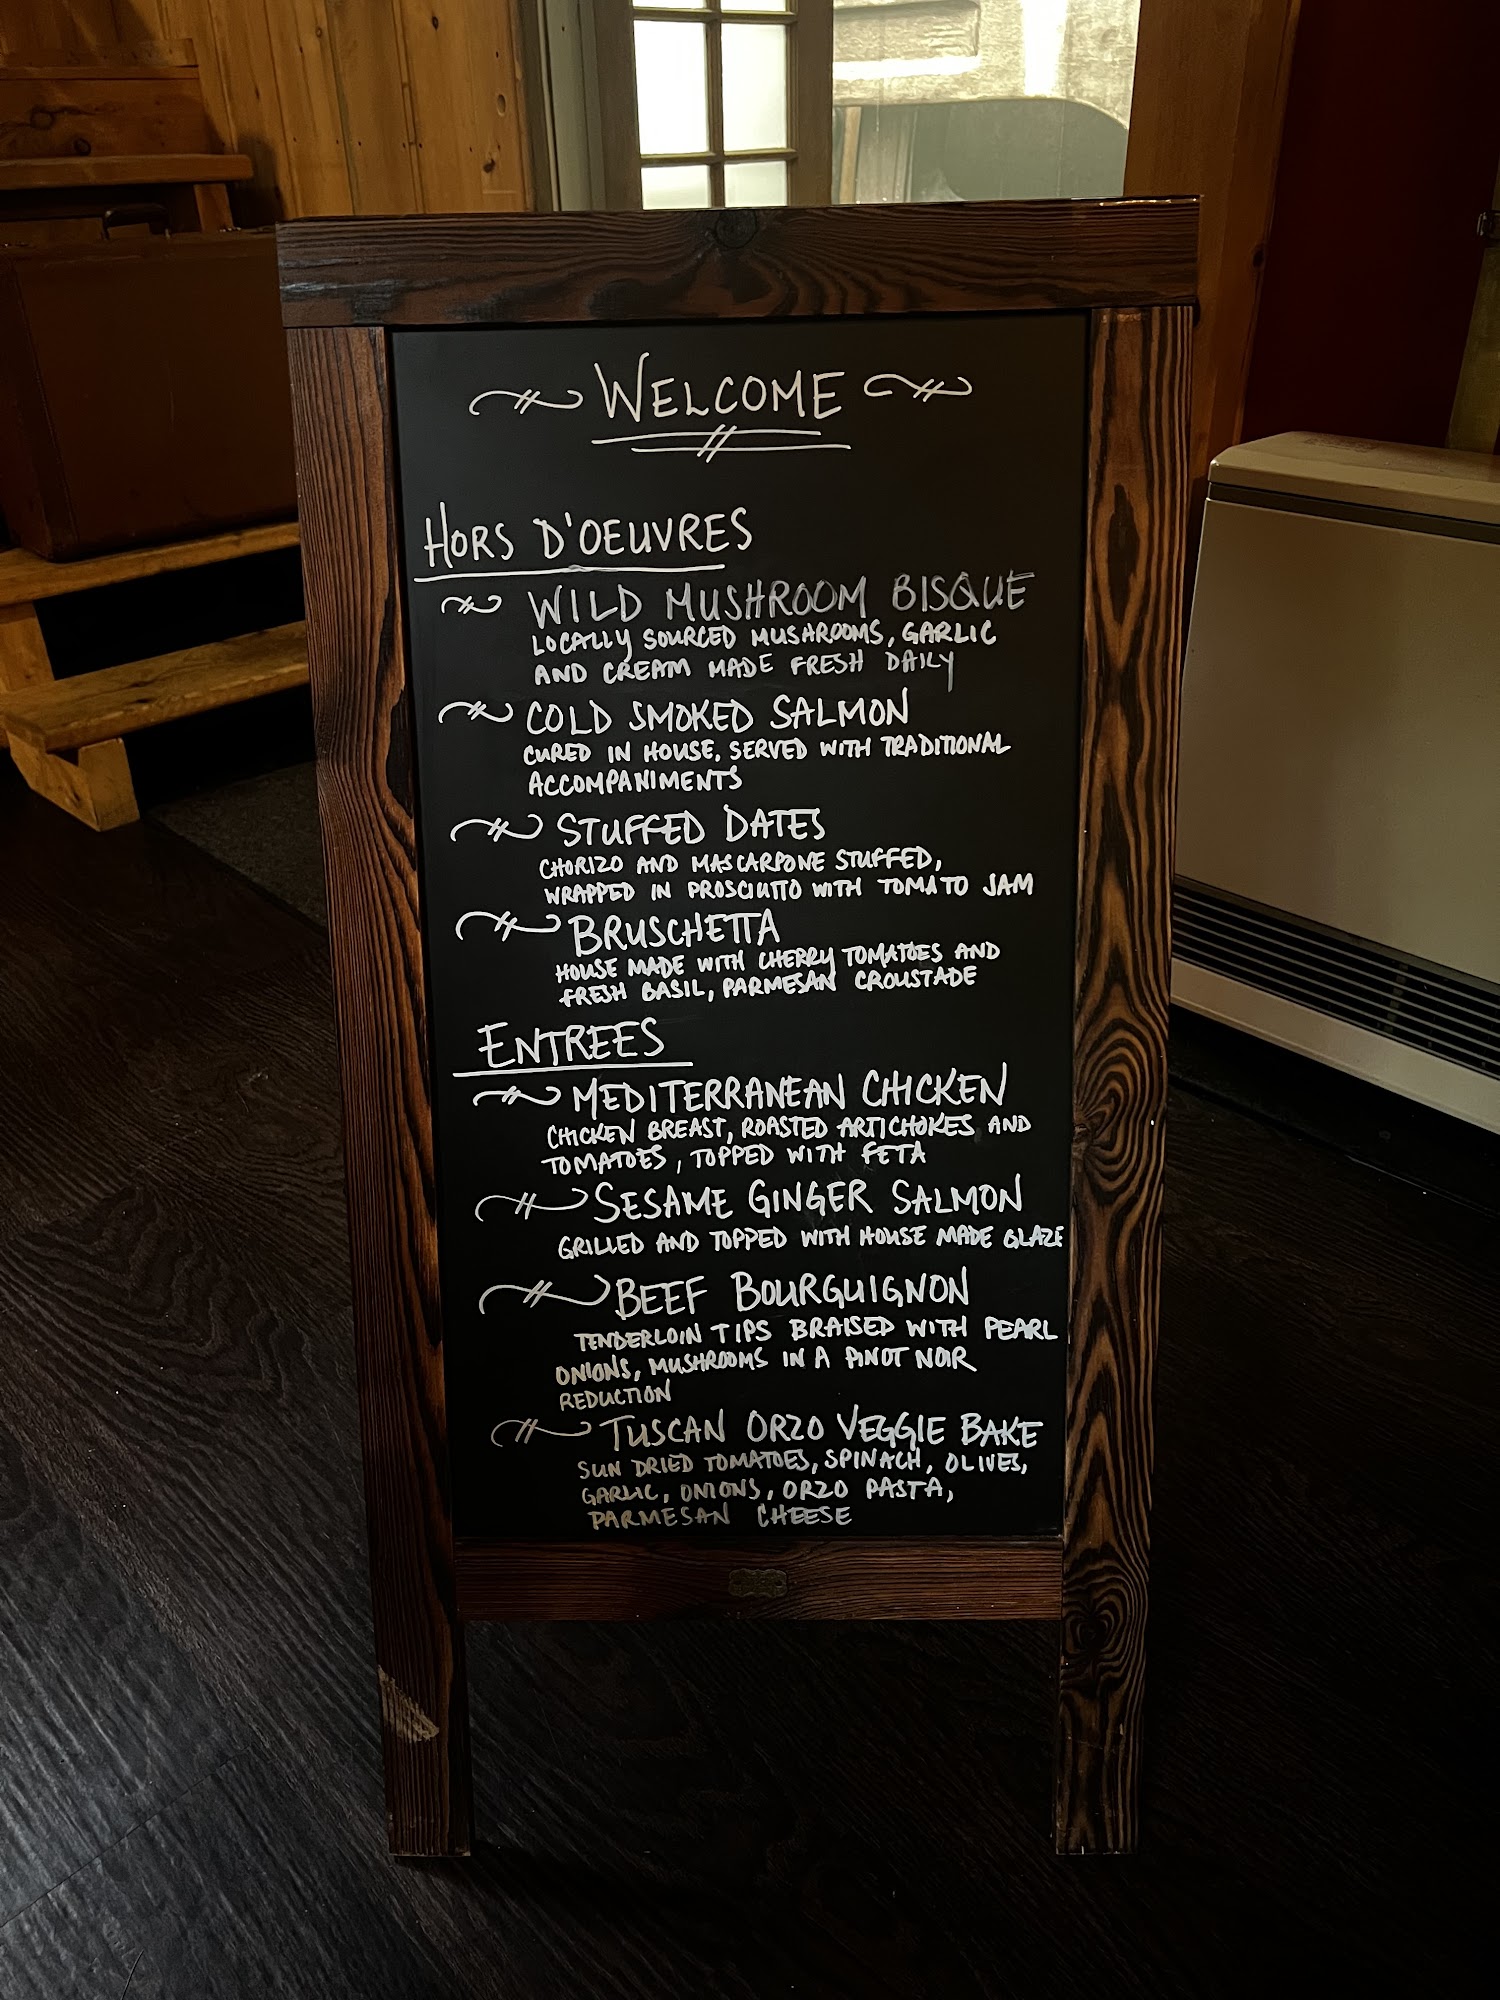 WELCOME
HORS D'OEUVRES
WILD MUSHROOM BISQUE
LOCALLY SOURCED MUSHROOMS, GARLIC
AND CREAM MADE FRESH DAILY
COLD SMOKED SALMON
CURED IN HOUSE. SERVED WITH TRADITIONAL
ACCOMPANIMENTS
STUFFED DATES
CHORIZO AND MASCARPONE STUFFED,
WRAPPED IN PROSCIUTTO WITH TOMATO JAM
BRUSCHETTA
HOUSE MADE WITH CHERRY TOMATOES AND
FRESH BASIL, PARMESAN CROUSTADE
ENTREES
MEDITERRANEAN CHICKEN
CHICKEN BREAST, ROASTED ARTICHOKES AND
TOMATOES, TOPPED WITH FETA
SESAME GINGER SALMON
GRILLED AND TOPPED WITH HOUSE MADE GLAZE
BEEF BOURGUIGNON
TENDERLOIN TIPS BRAISED WITH PEARL
ONIONS, MUSHROOMS IN A PINOT NOIR
REDUCTION
TUSCAN ORZO VEGGIE BAKE
SUN DRIED TOMATOES, SPINACH, OLIVES,
GARLIC, ONIONS, ORZO PASTA,
PARMESAN CHEESE